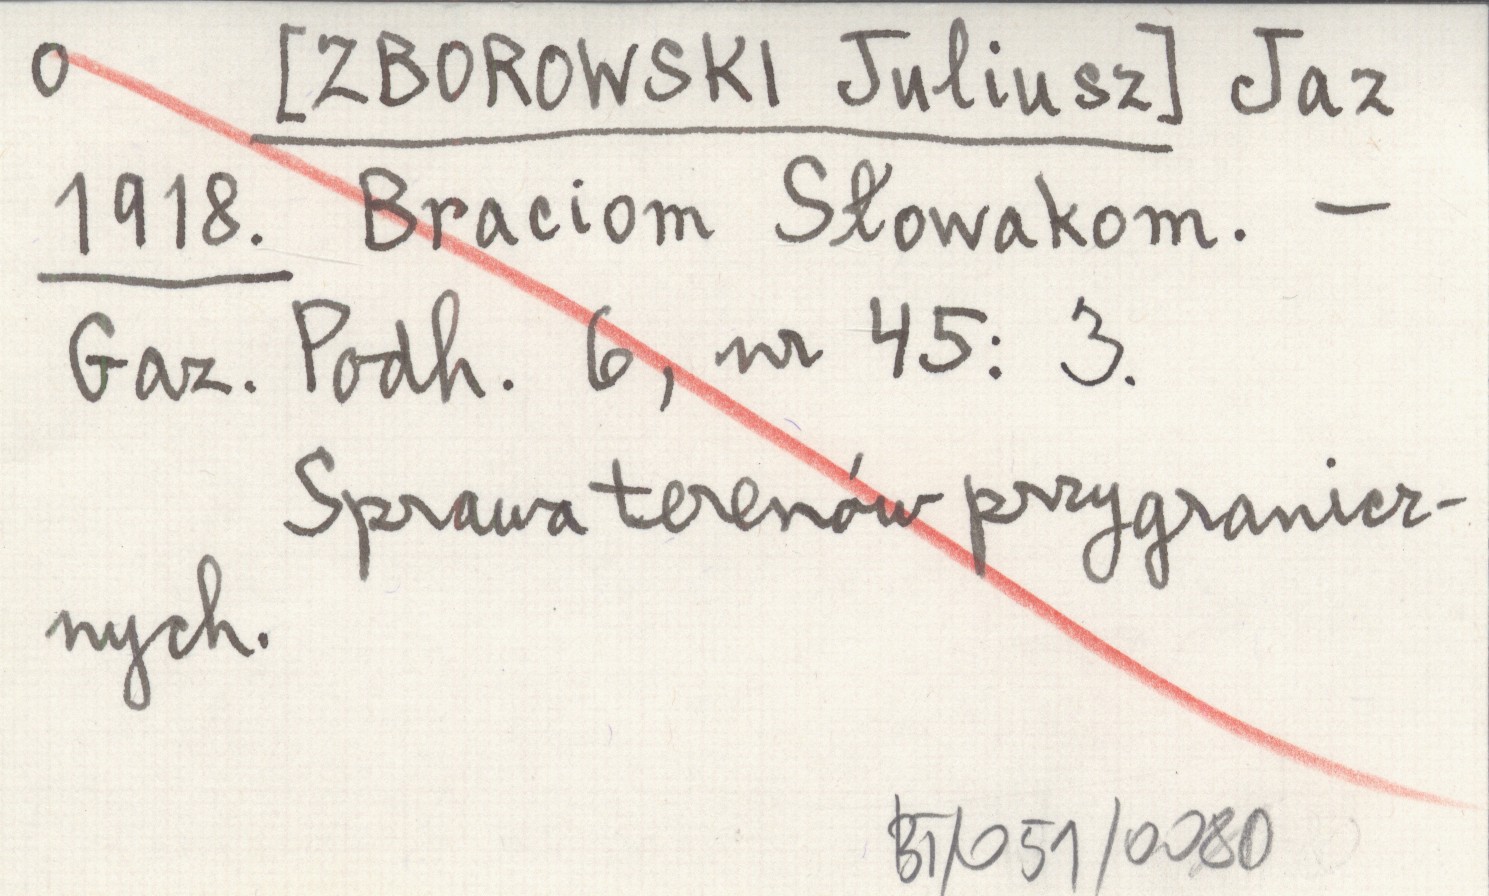 o [ZBOROWSKI Juliusz] Jaz
1918. Braciom Słowakom. —
Gaz. Podh. 6, nr 45: 3.
Sprawa terenów przygranicz-
nych.
BT/051/0080